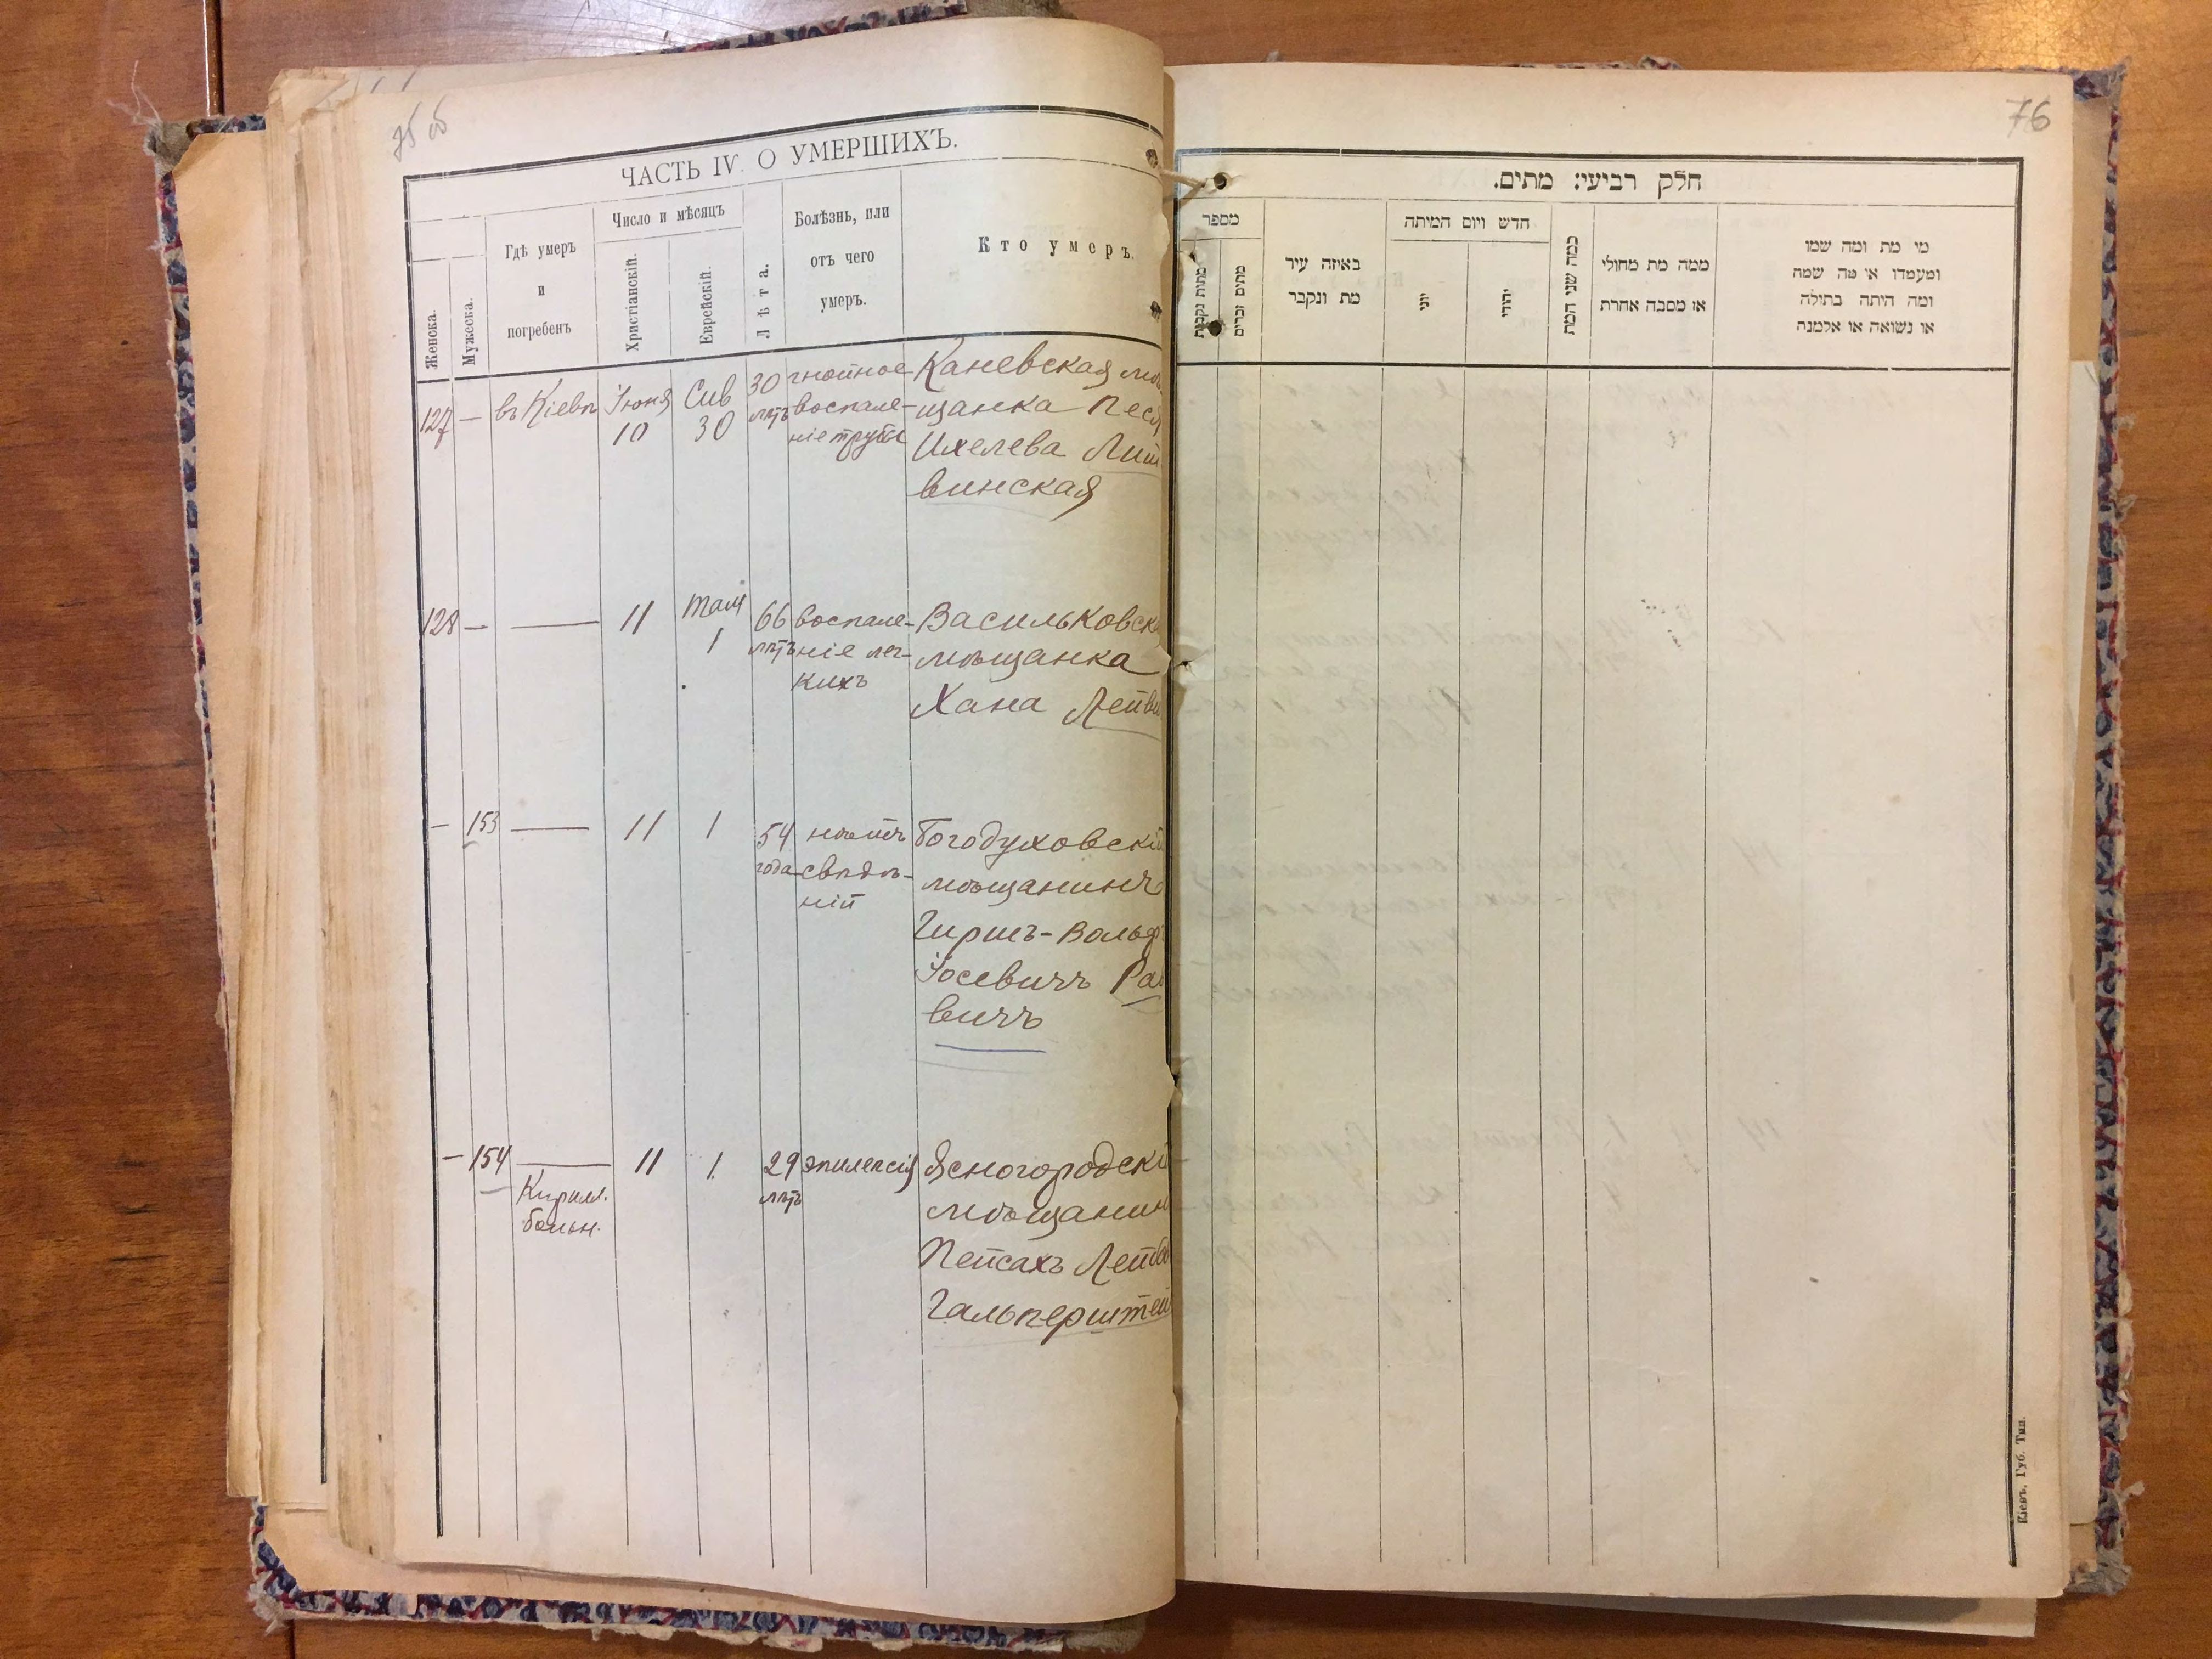 75 об
ЧАСТЬ IV. О УМЕРШИХЪ.
Женска.
Мужеска.
Гдѣ умеръ
и
погребенъ
Число и мѣсяцъ
Христіанскій.
Еврейскій.
Лѣта.
Болѣзнь, или
отъ чего
умеръ.
Кто умеръ.
127 — въ Кіевѣ Іюня 10 Сив 30 30 лѣтъ
гнойное
воспале-
ніе трубы
Каневская мѣ
щанка Песя
Ихелева Лит
винская
128 — — 11 Там 1 66 лѣтъ
воспале-
ніе лег-
кихъ
Васильковск
мѣщанка
Хана
— 153 — 11 1 54 года
нѣтъ
свѣдѣ-
ній
Богодуховскій
мѣщанинъ
Гиршъ-Вольф
Іосевичъ Ра
вичъ
— 154 — 11 1 29 лѣтъ
Кирил.
больн.
эпилепсія
Ясногородскі
мѣщанин
Пейсахъ Лейбов
Гальперштей
76
חלק רביעי: מתים.
מספר
מתות נקבות
מתים זכרים
באיזה עיר
מת ונקבר
חדש ויום המיתה
יוני
יהודי
כמה שני המת
ממה מת מחולי
או מסבה אחרת
מי מת ומה שמו
ומעמדו או מה שמה
ומה היתה בתולה
או נשואה או אלמנה
Кіевъ. Губ. Тип.